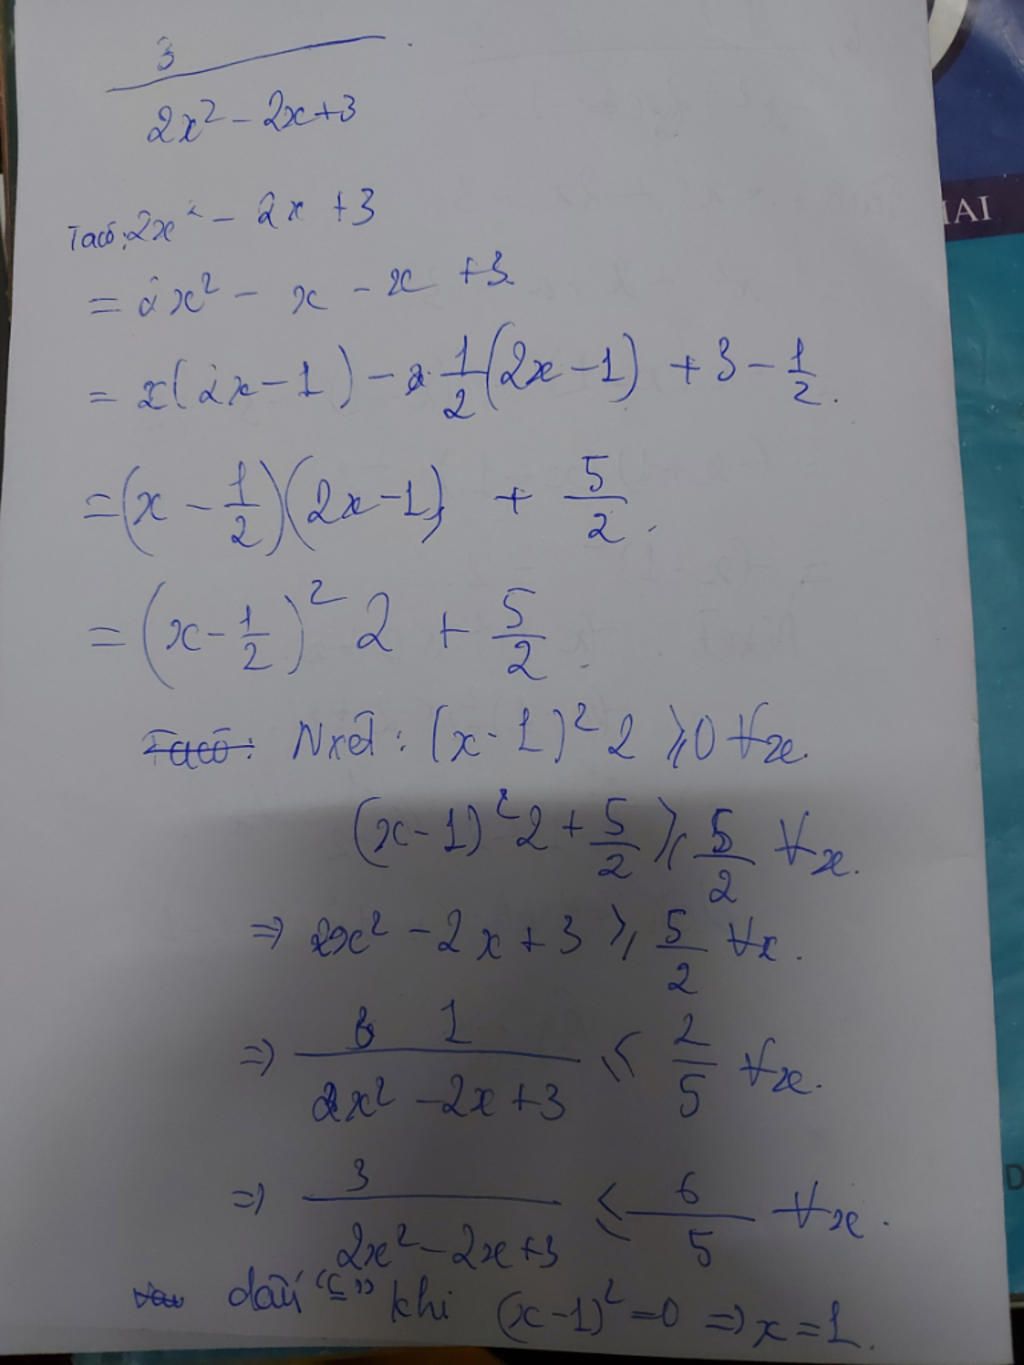 3
2x² - 2x + 3
IAI
Ta có: 2x² - 2x + 3
= 2x² - x - x + 3
= x(2x - 1) - 1/2 (2x - 1) + 3 - 1/2.
= (x - 1/2)(2x - 1) + 5/2.
= (x - 1/2)² 2 + 5/2.
Ta có: Nxét: (x - 1)² 2 ⩾ 0 ∀x.
(x - 1)² 2 + 5/2 ⩾ 5/2 ∀x.
⇒ 2x² - 2x + 3 ⩾ 5/2 ∀x.
⇒ 1/(2x² - 2x + 3) ⩽ 2/5 ∀x.
⇒ 3/(2x² - 2x + 3) ⩽ 6/5 ∀x.
D
dấu "=" khi (x - 1)² = 0 ⇒ x = 1.